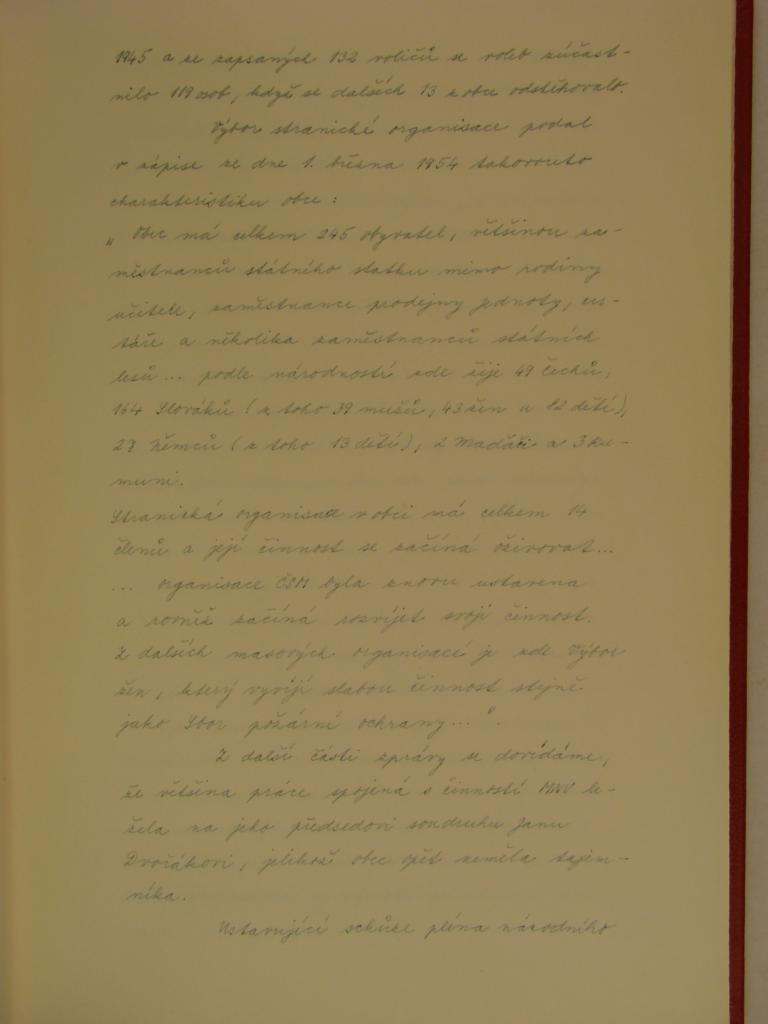 1945 a ze zapsaných 132 voličů se voleb zúčast-
nilo 119 osob, když se dalších 13 z obce odstěhovalo.
Výbor stranické organisace podal
v zápise ze dne 1. března 1954 takovouto
charakteristiku obce :
„ Obec má celkem 245 obyvatel, většinou za-
městnanců státního statku mimo rodiny
učitele, zaměstnance prodejny Jednoty, ces-
táře a několika zaměstnanců státních
lesů... podle národností zde žije 49 Čechů,
164 Slováků (z toho 39 mužů, 43 žen a 82 dětí),
27 Němců (z toho 13 dětí), 2 Maďaři a 3 Ru-
muni.
Stranická organisace v obci má celkem 14
členů a její činnost se začíná oživovat...
... organisace ČSM byla znovu ustavena
a rovněž začíná rozvíjet svojí činnost.
Z dalších masových organisací je zde Výbor
žen, který vyvíjí slabou činnost stejně
jako Sbor požární ochrany... “.
Z další části zprávy se dovídáme,
že většina práce spojená s činností MNV le-
žela na jeho předsedovi soudruhu Janu
Dvořákovi, jelikož obec opět neměla tajem-
níka.
Ustavující schůze pléna národního